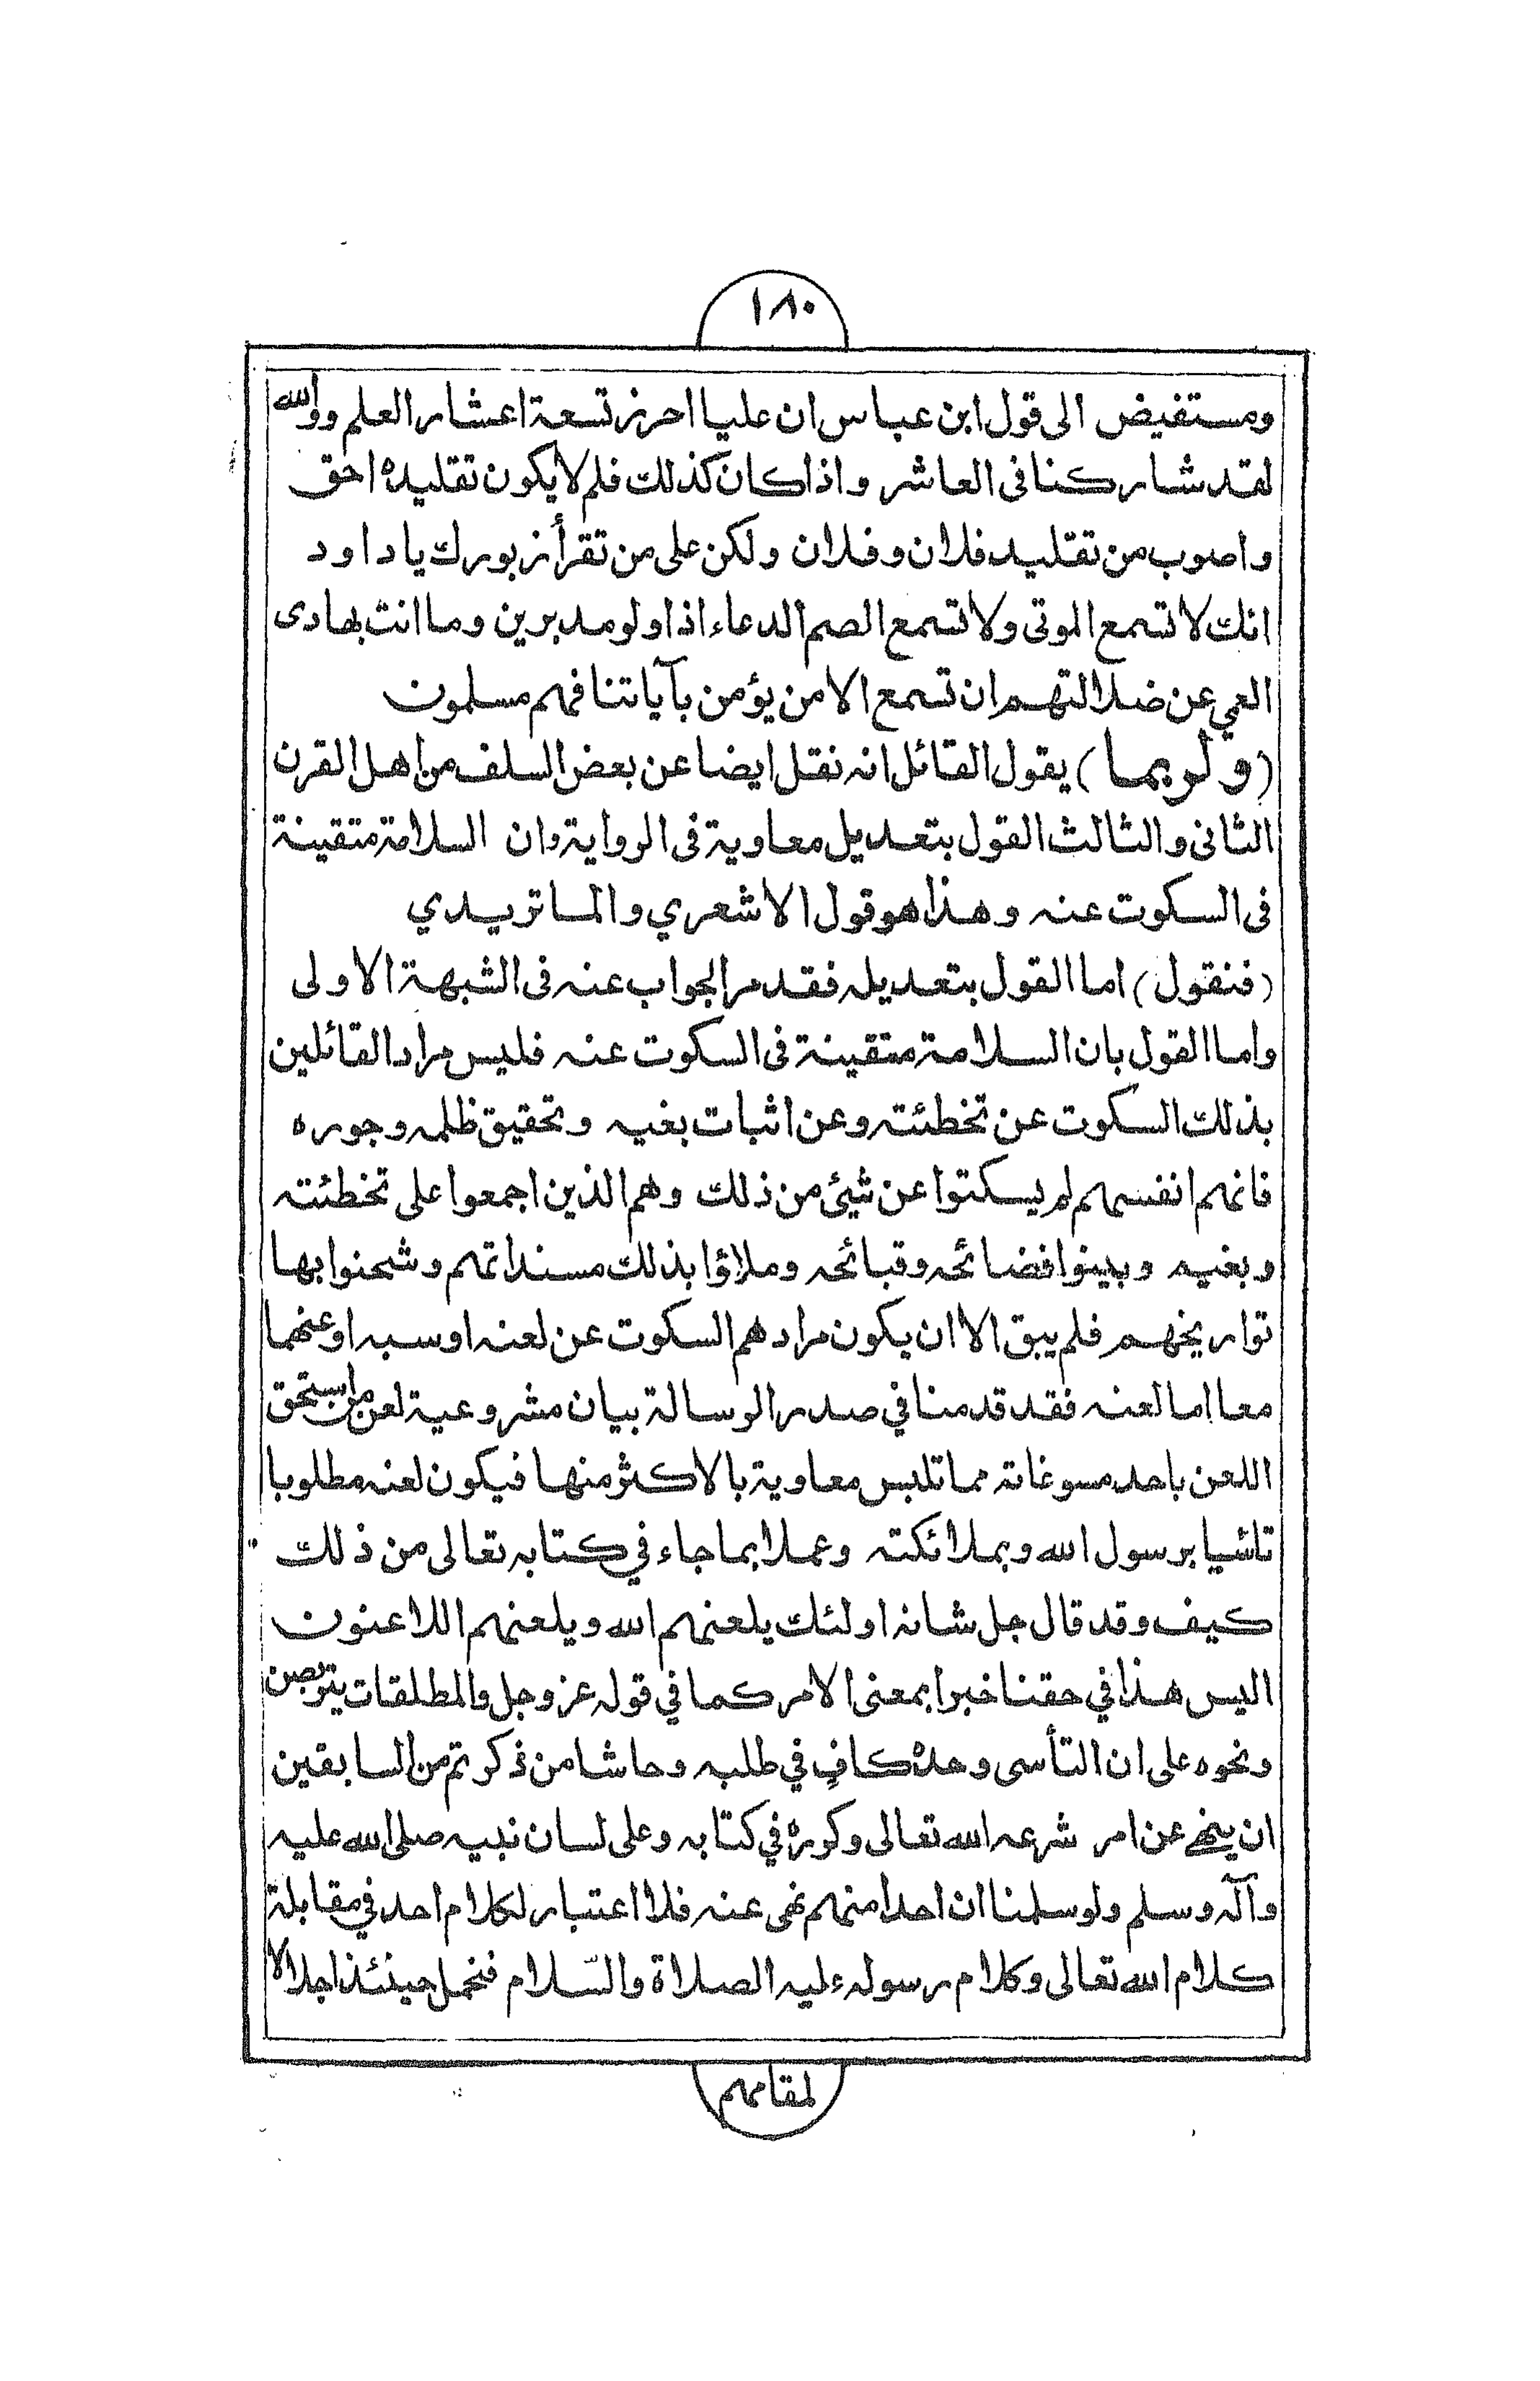 ١٨٠
ومستفيض الى قول ابن عباس ان عليا احرز تسعة اعشار العلم ووالله
لقد شاركنا فى العاشر واذا كان كذلك فلم لا يكون تقليده احق
واصوب من تقليد فلان وفلان ولكن على من تقرأ زبورك يا داود
انك لا تسمع الموتى ولا تسمع الصم الدعاء اذا ولو مدبرين وما انت بهادى
العمي عن ضلالتهم ان تسمع الا من يؤمن بآياتنا فهم مسلمون
(ولربما) يقول القائل انه نقل ايضا عن بعض السلف من اهل القرن
الثانى والثالث القول بتعديل معاوية فى الرواية وان السلامة متقينة
فى السكوت عنه وهذا هو قول الاشعري والماتريدي
(فنقول) اما القول بتعديله فقد مر الجواب عنه فى الشبهة الاولى
واما القول بان السلامة متقينة فى السكوت عنه فليس مراد القائلين
بذلك السكوت عن تخطئته وعن اثبات بغيه وتحقيق ظلمه وجوره
فانهم انفسهم لم يسكتوا عن شيئ من ذلك وهم الذين اجمعوا على تخطئته
وبغيه وبينوا فضائحه وقبائحه وملاؤا بذلك مسنداتهم وشحنوا بها
تواريخهم فلم يبق الا ان يكون مرادهم السكوت عن لعنه او سبه او عنهما
معا اما لعنه فقد قدمنا في صدر الرسالة بيان مشروعية لعن من يستحق
اللعن باحد مسوغاته مما تلبس معاوية بالاكثر منها فيكون لعنه مطلوبا
تاسّيا برسول الله وبملائكته وعملا بما جاء في كتابه تعالى من ذلك
كيف وقد قال جل شانه اولئك يلعنهم الله ويلعنهم اللاعنون
اليس هذا في حقنا خبرا بمعنى الامر كما في قوله عز وجل والمطلقات يتربصن
ونحوه على ان التأسى وحده كافٍ في طلبه وحاشا من ذكرتم من السابقين
ان ينهى عن امر شرعه الله تعالى وكرره في كتابه وعلى لسان نبيه صلى الله عليه
وآله وسلم ولو سلمنا ان احدا منهم نهى عنه فلا اعتبار لكلام احد في مقابلة
كلام الله تعالى وكلام رسوله عليه الصلاة والسّلام فنحمل حينئذ اجلالا
لمقامهم